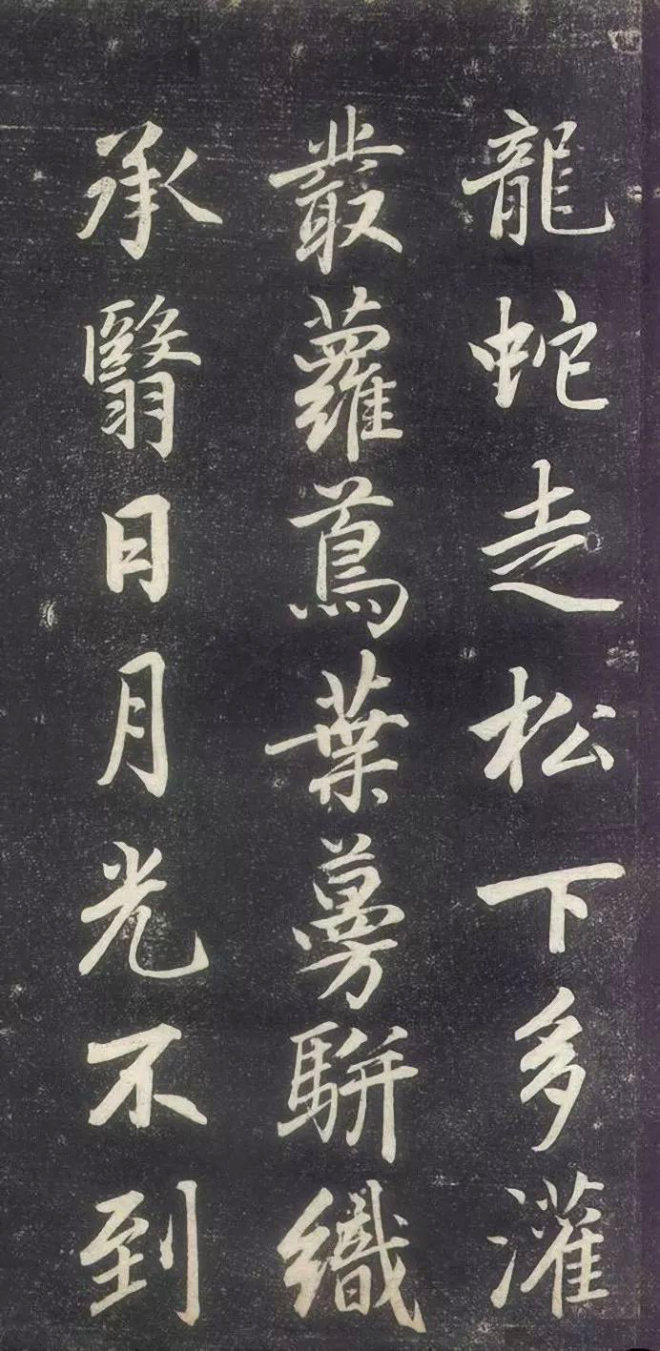 龍蛇走松下多灌
叢蘿蔦葉蔓駢織
承翳日月光不到